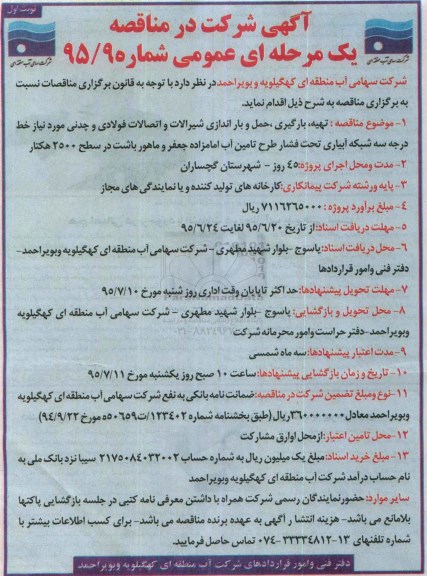 نوبت اول
آگهی شرکت در مناقصه
یک مرحله ای عمومی شماره ۹۵/۹
شرکت سهامی آب منطقه ای کهگیلویه و بویراحمد در نظر دارد با توجه به قانون برگزاری مناقصات نسبت
به برگزاری مناقصه به شرح ذیل اقدام نماید.
۱- موضوع مناقصه : تهیه، بارگیری ،حمل و بار اندازی شیرالات و اتصالات فولادی و چدنی مورد نیاز خط
درجه سه شبکه آبیاری تحت فشار طرح تامین آب امامزاده جعفر و ماهور باشت در سطح ۲۵۰۰ هکتار
۲- مدت ومحل اجرای پروژه:۴۵ روز - شهرستان گچساران
۳- پایه ورشته شرکت پیمانکاری:کارخانه های تولید کننده و یا نمایندگی های مجاز
۴- مبلغ برآورد پروژه : ۷۱۱۶۲۶۵۰۰۰ ریال
۵- مهلت دریافت اسناد:از تاریخ ۹۵/۶/۲۰ لغایت ۹۵/۶/۲۴
۶-محل دریافت اسناد: یاسوج -بلوار شهید مطهری - شرکت سهامی آب منطقه ای کهگیلویه وبویراحمد-
دفتر فنی وامور قراردادها
۷-مهلت تحویل پیشنهادها: حداکثر تاپایان وقت اداری روز شنبه مورخ ۹۵/۷/۱۰
۸- محل تحویل و بازگشایی: یاسوج -بلوار شهید مطهری - شرکت سهامی آب منطقه ای کهگیلویه
وبویراحمد-دفتر حراست وامور محرمانه شرکت
۹-مدت اعتبار پیشنهادها: سه ماه شمسی
۱۰- تاریخ و زمان بازگشایی پیشنهادها: ساعت ۱۰ صبح روز یکشنبه مورخ ۹۵/۷/۱۱
۱۱-نوع ومبلغ تضمین شرکت در مناقصه:ضمانت نامه بانکی به نفع شرکت سهامی آب منطقه ای کهگیلویه
وبویراحمد معادل ۳۶۰۰۰۰۰۰۰ ریال(طبق بخشنامه شماره ۱۲۳۴۰۲/ت۵۰۶۵۹ه مورخ ۹۴/۹/۲۲)
۱۲-محل تامین اعتبار:ازمحل اوراق مشارکت
۱۳- مبلغ خرید اسناد: مبلغ یک میلیون ریال به شماره حساب ۲۱۷۵۰۸۴۰۳۲۰۰۲ سیبا نزد بانک ملی به
نام حساب درآمد شرکت آب منطقه ای کهگیلویه وبویراحمد
سایر موارد: حضور نمایندگان رسمی شرکت همراه با داشتن معرفی نامه کتبی در جلسه بازگشایی پاکتها
بلامانع می باشد- هزینه انتشار آگهی به عهده برنده مناقصه می باشد- برای کسب اطلاعات بیشتر با
شماره تلفنهای ۱۳-۳۳۳۳۴۸۱۲-۰۷۴ تماس حاصل فرمایید.
دفتر فنی وامور قراردادهای شرکت آب منطقه ای کهگیلویه وبویراحمد